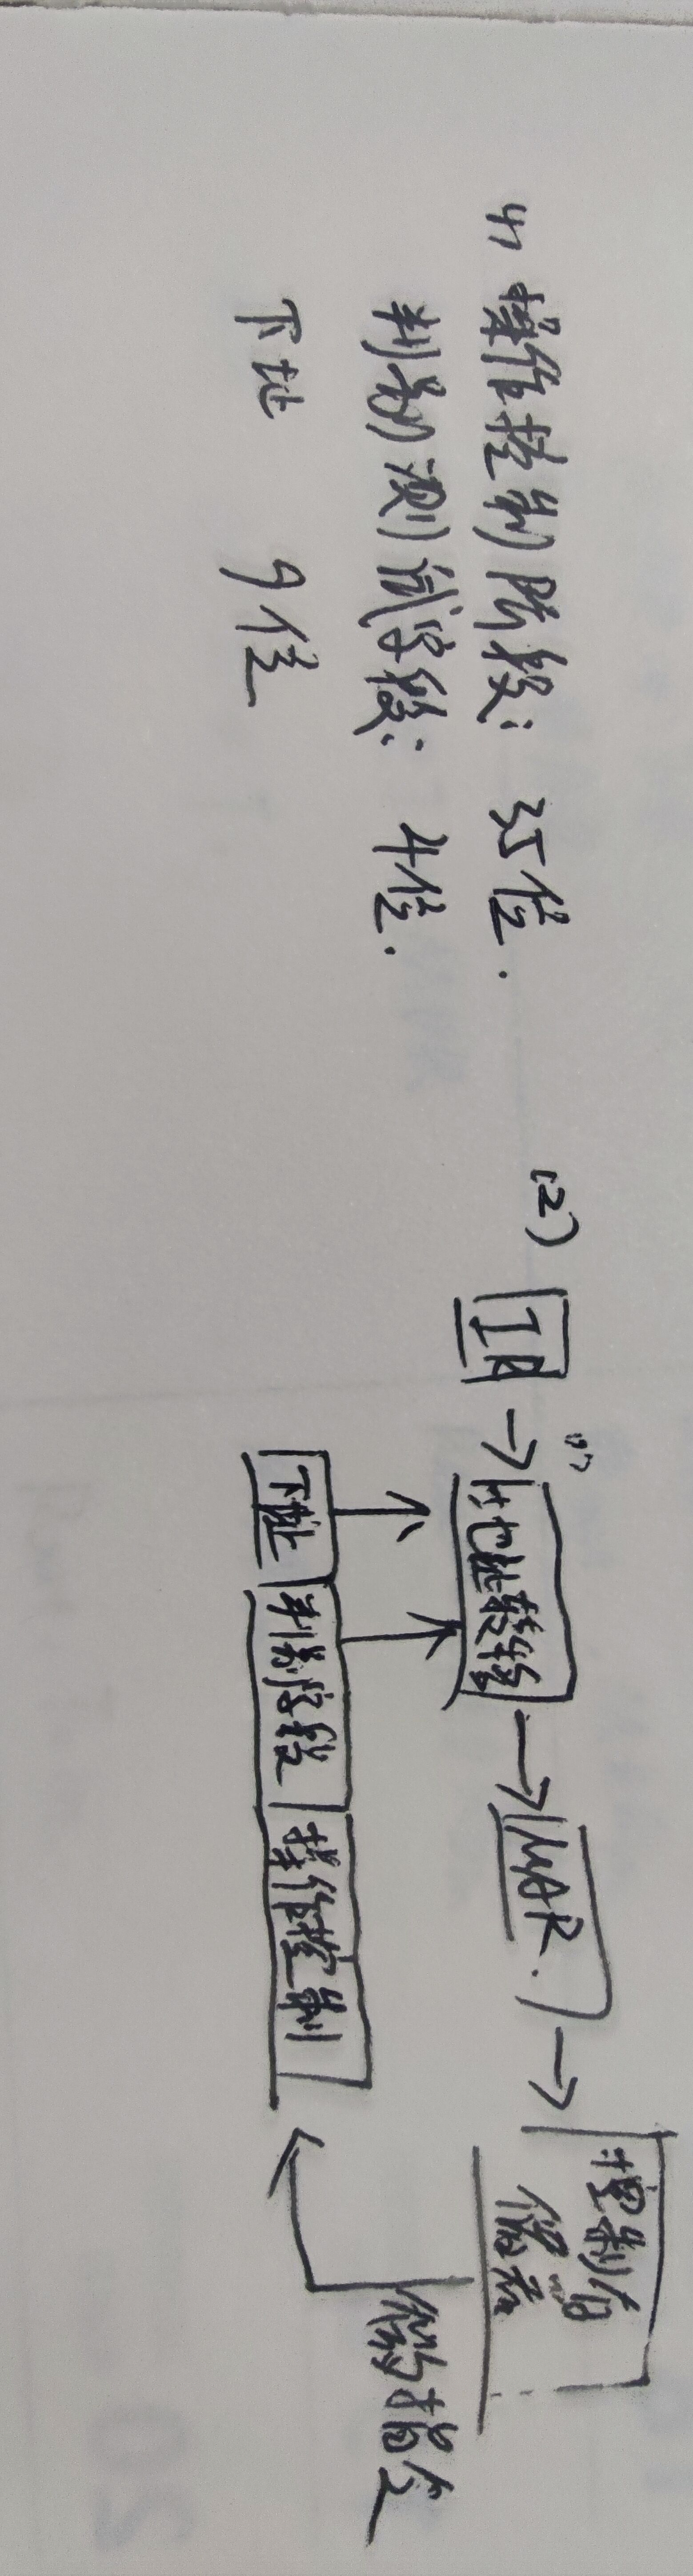 (1) 操作控制阶段: 35位.
判别测试字段: 4位.
下址 9位
(2) IR → 地址转移 → MAR. → 控制存储器
微指令
下址 判别字段 操作控制
20